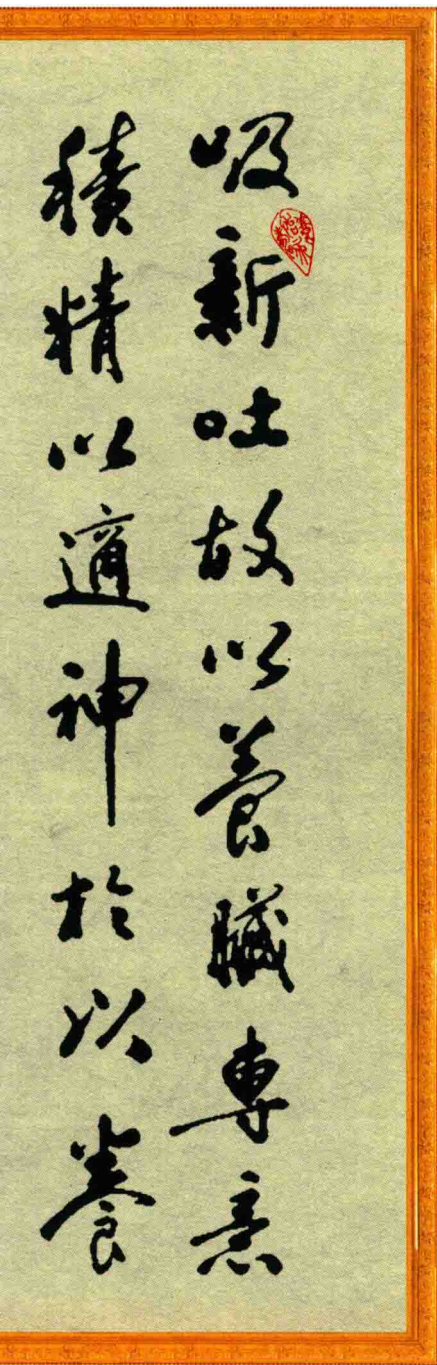 吸新吐故以養臟專意
積精以適神於以養